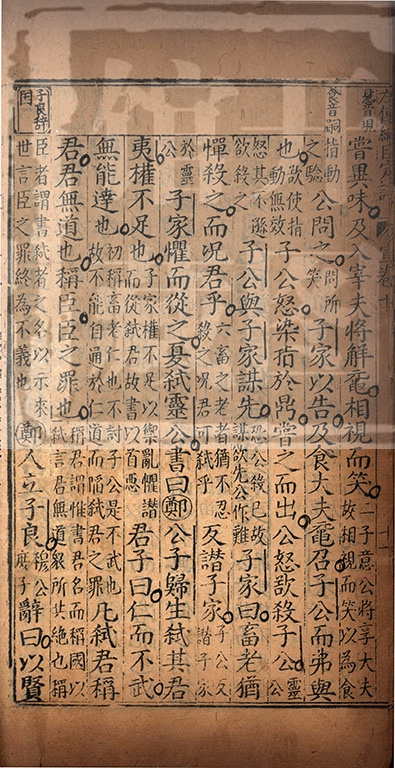 嘗異味及入宰夫將解黿相視而笑二子意公將享大夫故相視而笑以為食
指動之驗公問之問所笑子家以告及食大夫黿召子公而弗與
也欲使指動無效子公怒染指於鼎嘗之而出公怒欲殺子公靈公
怒其不遜欲殺之子公與子家謀先恐公殺己故謀欲先公作難子家曰畜老猶
憚殺之而況君乎六畜之老者猶不忍殺之況君可弒乎反譖子家子公反譖子家
於靈公子家懼而從之夏弒靈公書曰鄭公子歸生弒其君
夷權不足也子家權不足以禦亂懼譖而從弒君故書以首惡君子曰仁而不武
無能達也初稱畜老仁也不討子公是不武也故不能自通於仁道而陷弒君之罪凡弒君稱
君君無道也稱臣臣之罪也稱君謂惟書君名而稱國以弒言君無道衆所共絕也稱
臣者謂書弒者之名以示來世言臣之罪終為不義也鄭人立子良穆公庶子辭曰以賢